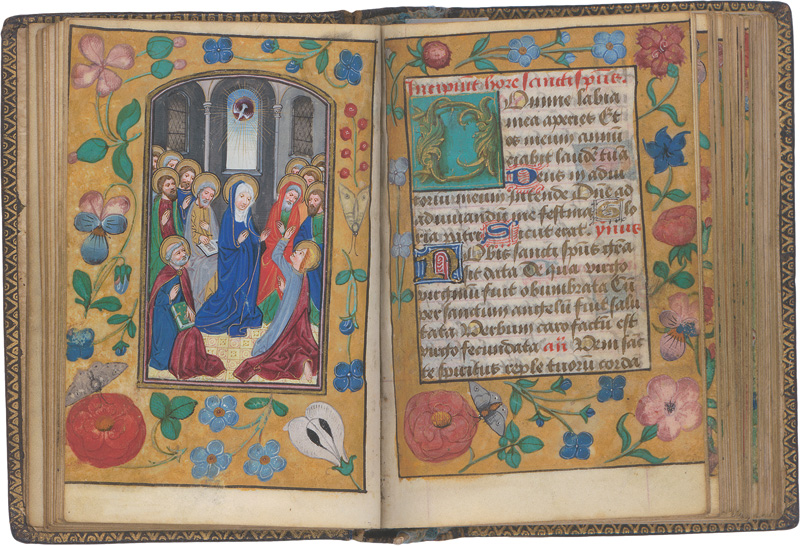 Incipiunt hore sancti spũs.
Domine labia
mea aperies Et
os meum annũ
ciabit laudẽ tuã
Deus in adiu
torium meum intende Dñe ad
adiuuandum me festina Glo
ria patri Sicut erat. ymus
Nobis sancti spũs grã
sit data De qua virgo
virginũ fuit obumbrata Cũ
per sanctum angelũ fuit salu
tata Verbum caro factũ est
virgo fecundata añ Veni san
te spiritus reple tuorũ corda